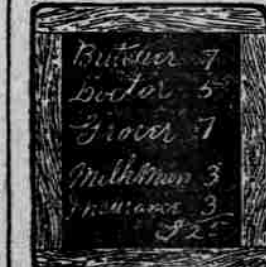 Butcher 7
Doctor 5
Grocer 7
Milkman 3
Insurance 3